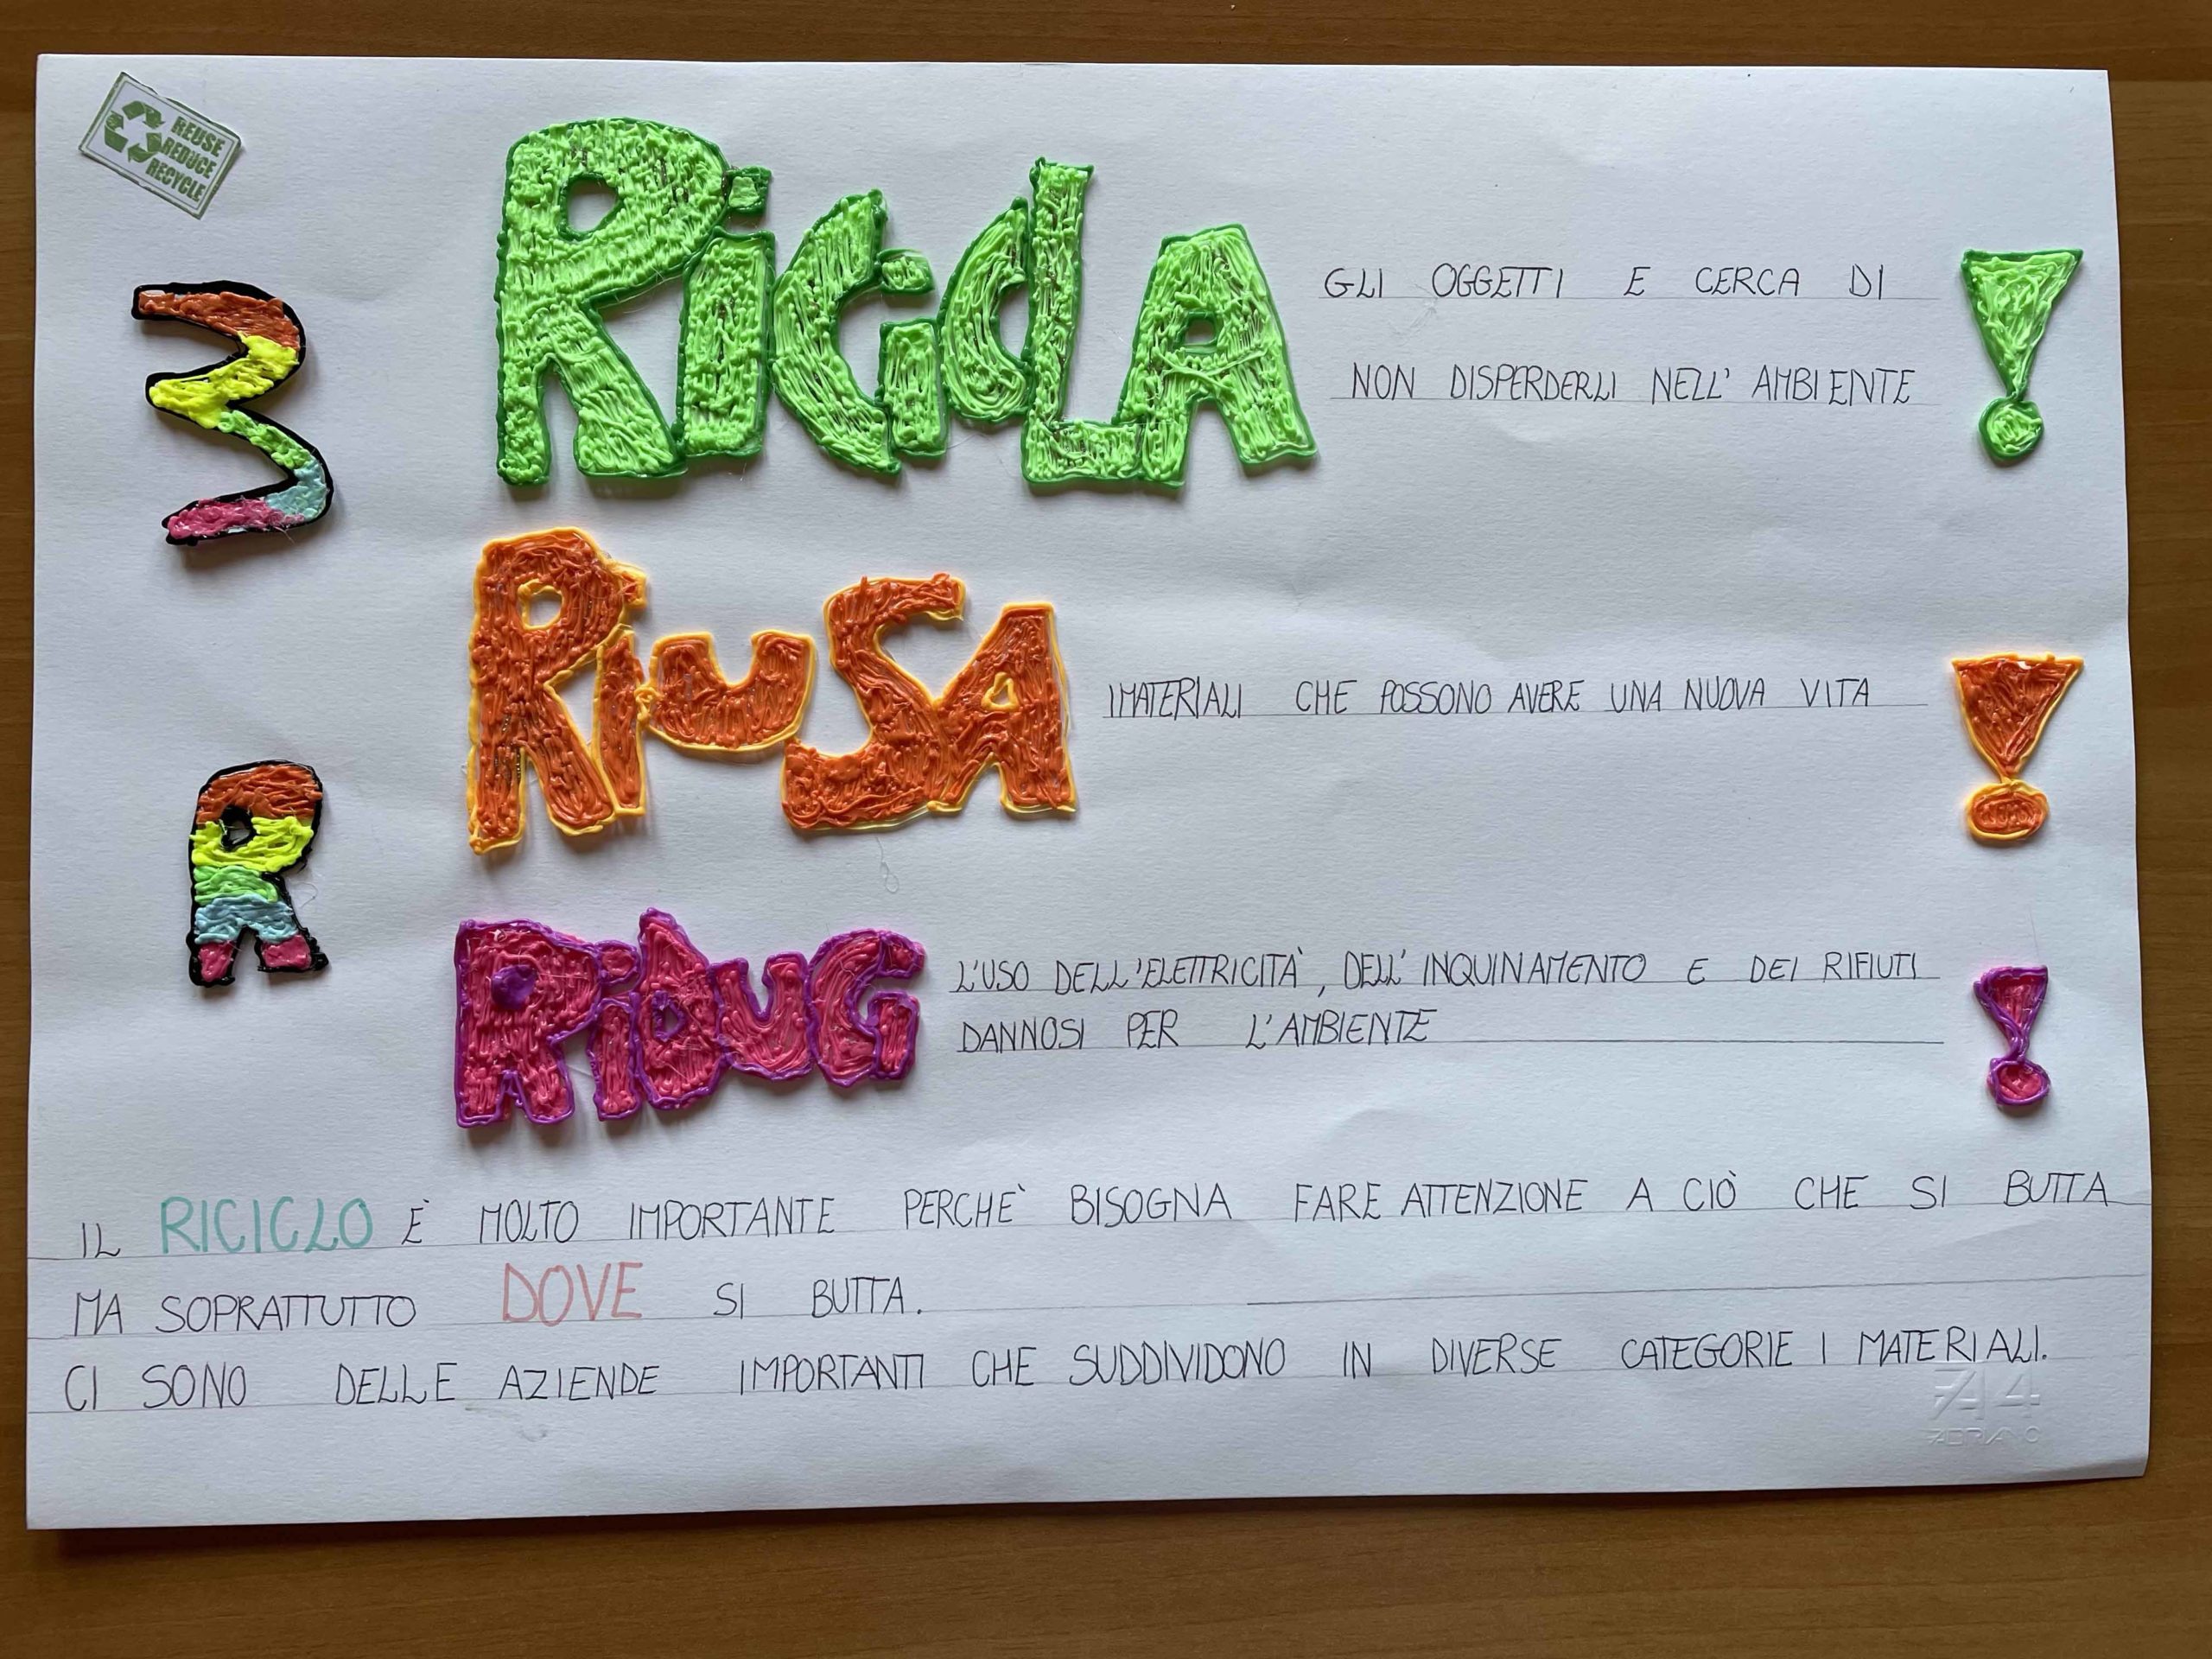 REUSE
REDUCE
RECYCLE
3
R
RiCiCLA GLI OGGETTI E CERCA DI
NON DISPERDERLI NELL' AMBIENTE !
RiuSA I MATERIALI CHE POSSONO AVERE UNA NUOVA VITA !
RiDuCi L'USO DELL'ELETTRICITÀ, DELL'INQUINAMENTO E DEI RIFIUTI
DANNOSI PER L'AMBIENTE !
IL RICICLO È MOLTO IMPORTANTE PERCHÈ BISOGNA FARE ATTENZIONE A CIÒ CHE SI BUTTA
MA SOPRATTUTTO DOVE SI BUTTA.
CI SONO DELLE AZIENDE IMPORTANTI CHE SUDDIVIDONO IN DIVERSE CATEGORIE I MATERIALI.
FA4
FABRIANO